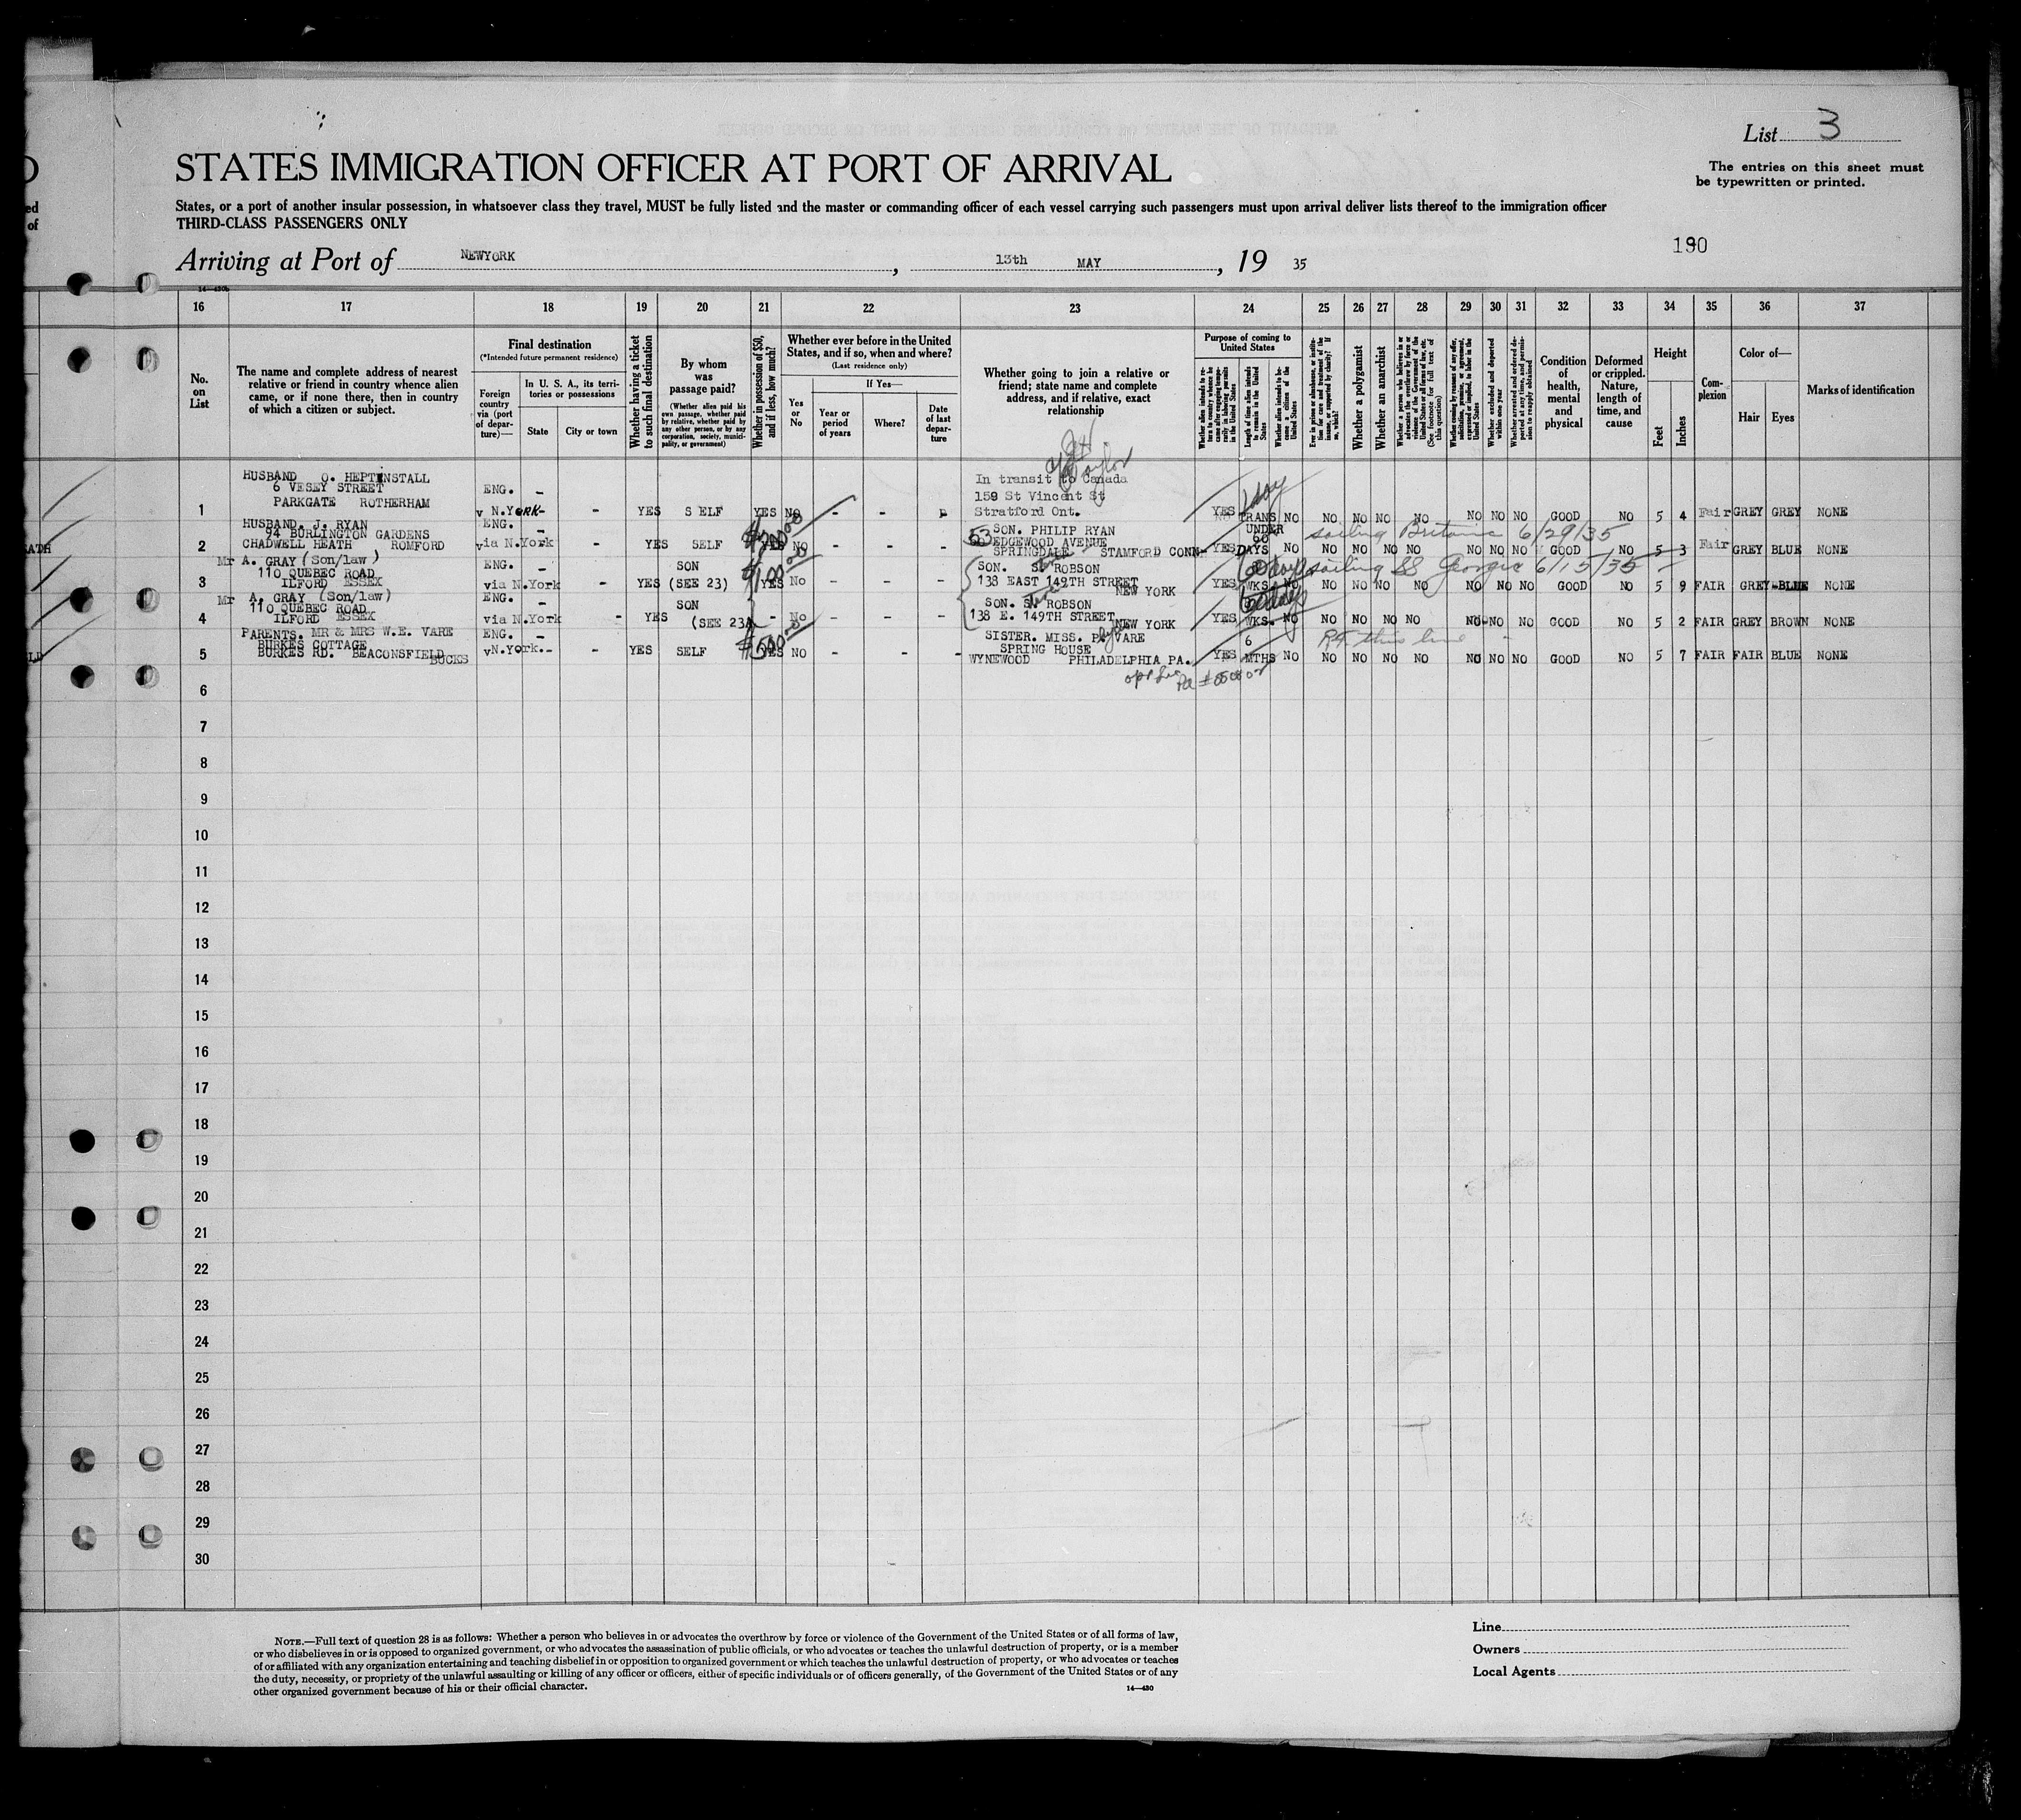 List 3
STATES IMMIGRATION OFFICER AT PORT OF ARRIVAL
The entries on this sheet must
be typewritten or printed.
States, or a port of another insular possession, in whatsoever class they travel, MUST be fully listed and the master or commanding officer of each vessel carrying such passengers must upon arrival deliver lists thereof to the immigration officer
THIRD-CLASS PASSENGERS ONLY
190
Arriving at Port of NEWYORK, 13th MAY, 19 35
16 17 18 19 20 21 22 23 24 25 26 27 28 29 30 31 32 33 34 35 36 37
No. on List
The name and complete address of nearest
relative or friend in country whence alien
came, or if none there, then in country
of which a citizen or subject.
Final destination
(*Intended future permanent residence)
Foreign country via (port of departure)—
In U. S. A., its territories or possessions
State
City or town
Whether having a ticket to such final destination
By whom was passage paid?
(Whether alien paid his own passage, whether paid by relative, whether paid by any other person, or by any corporation, society, municipality, or government)
Whether in possession of $50, and if less, how much?
Whether ever before in the United States, and if so, when and where?
(Last residence only)
If Yes—
Yes or No
Year or period of years
Where?
Date of last departure
Whether going to join a relative or
friend; state name and complete
address, and if relative, exact
relationship
Purpose of coming to United States
Length of time alien intends to remain in the United States
Whether alien intends to become a citizen of the United States
Whether a polygamist
Whether an anarchist
Whether excluded and deported within one year
Condition of health, mental and physical
Deformed or crippled. Nature, length of time, and cause
Height
Feet
Inches
Complexion
Color of—
Hair
Eyes
Marks of identification
HUSBAND O. HEPTINSTALL
6 VESEY STREET
PARKGATE ROTHERHAM
1 ENG. v N.York - - YES SELF YES No - - In transit to Canada
159 St Vincent St
Stratford Ont.
YES TRANS NO NO NO NO NO NO NO NO GOOD NO 5 4 Fair GREY GREY NONE
HUSBAND. J. RYAN
94 BURLINGTON GARDENS
CHADWELL HEATH ROMFORD
2 ENG. via N.York - - YES SELF YES No - - - SON. PHILIP RYAN
53 EDGEWOOD AVENUE
SPRINGDALE STAMFORD CONN-
YES UNDER 60 DAYS NO NO NO NO NO NO NO NO GOOD NO 5 3 Fair GREY BLUE NONE
sailing Britanic 6/29/35
Mr A. GRAY (Son/law)
110 QUEBEC ROAD
ILFORD ESSEX
3 ENG. via N.York - - YES SON (SEE 23) $100 YES No - - - SON. ROBSON
138 EAST 149TH STREET
NEW YORK
YES WKS. NO NO NO NO NO NO NO NO GOOD NO 5 9 FAIR GREY-BLUE NONE
sailing SS Georgic 6/15/35
Mr A. GRAY (Son/law)
110 QUEBEC ROAD
ILFORD ESSEX
4 ENG. via N.York - - YES SON (SEE 23) - No - - - SON. ROBSON
138 E. 149TH STREET
NEW YORK
YES 60 days WKS. NO NO NO NO NO NO NO NO GOOD NO 5 2 FAIR GREY BROWN NONE
PARENTS. MR & MRS W.E. VARE
BURKES COTTAGE
BURKES RD. BEACONSFIELD BUCKS
5 ENG. v N.York. - - YES SELF $500 YES NO - - - SISTER. MISS. P. VARE
SPRING HOUSE
WYNEWOOD PHILADELPHIA PA.
YES 6 MTHS NO NO NO NO NO NO NO NO GOOD NO 5 7 FAIR FAIR BLUE NONE
6
7
8
9
10
11
12
13
14
15
16
17
18
19
20
21
22
23
24
25
26
27
28
29
30
NOTE.—Full text of question 28 is as follows: Whether a person who believes in or advocates the overthrow by force or violence of the Government of the United States or of all forms of law,
or who disbelieves in or is opposed to organized government, or who advocates the assassination of public officials, or who advocates or teaches the unlawful destruction of property, or is a member
of or affiliated with any organization entertaining and teaching disbelief in or opposition to organized government or which teaches the unlawful destruction of property, or who advocates or teaches
the duty, necessity, or propriety of the unlawful assaulting or killing of any officer or officers, either of specific individuals or of officers generally, of the Government of the United States or of any
other organized government because of his or their official character.
14—430
Line
Owners
Local Agents